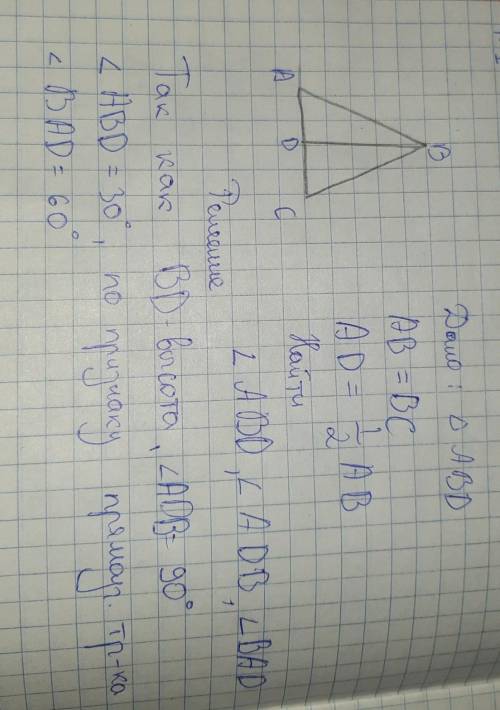 B
A
D
C
Дано: △ ABD
AB = BC
AD = 1/2 AB
Найти
∠ ABD, ∠ ADB, ∠BAD
Решение
Так как BD-высота, ∠ADB= 90°
∠ ABD = 30°, по признаку прямоуг. тр-ка
∠ BAD = 60°